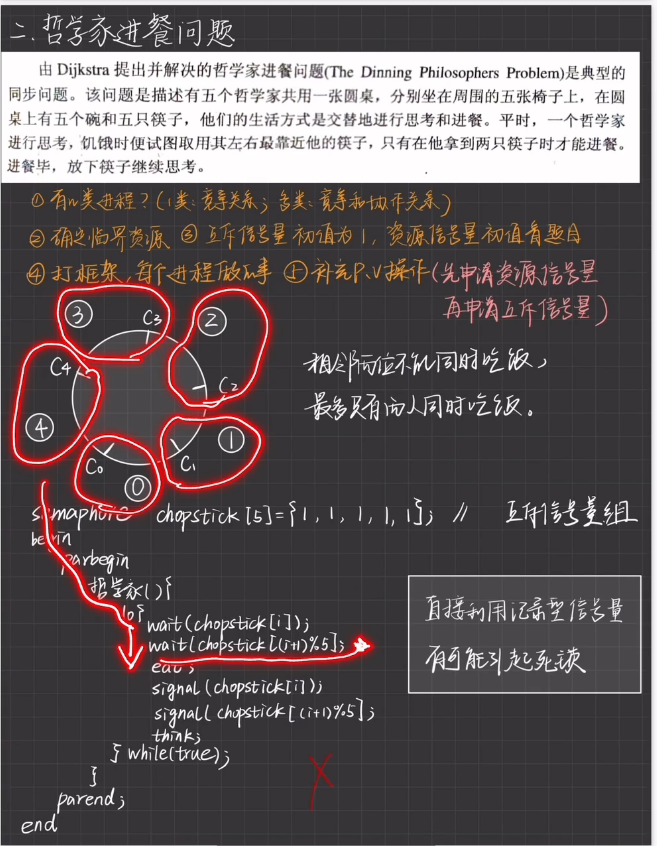 二.哲学家进餐问题
由 Dijkstra 提出并解决的哲学家进餐问题(The Dinning Philosophers Problem)是典型的
同步问题。该问题是描述有五个哲学家共用一张圆桌，分别坐在周围的五张椅子上，在圆
桌上有五个碗和五只筷子，他们的生活方式是交替地进行思考和进餐。平时，一个哲学家
进行思考，饥饿时便试图取用其左右最靠近他的筷子，只有在他拿到两只筷子时才能进餐。
进餐毕，放下筷子继续思考。
① 有几类进程？(1类：竞争关系；多类：竞争和协作关系)
② 确定临界资源 ③ 互斥信号量初值为1，资源信号量初值看题目
④ 打框架，每个进程做的事 ⑤ 补充P、V操作(先申请资源信号量
再申请互斥信号量)
③ C3 ②
C4 C2
④ ①
C0 C1
⓪
相邻两位不能同时吃饭，
最多只有两人同时吃饭。
semaphore chopstick[5]={1,1,1,1,1}; // 互斥信号量组
begin
parbegin
哲学家(){
do{
wait(chopstick[i]);
wait(chopstick[(i+1)%5];
eat;
signal(chopstick[i]);
signal( chopstick[(i+1)%5];
think;
} while(true);
}
parend;
end
直接利用记录型信号量
有可能引起死锁